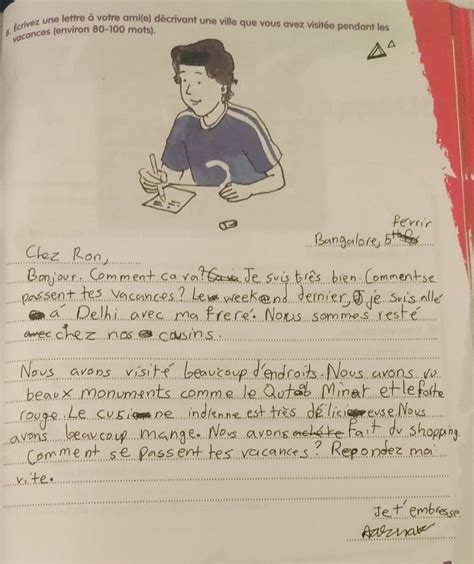 3. Écrivez une lettre à votre ami(e) décrivant une ville que vous avez visitée pendant les
vacances (environ 80-100 mots).
fevrir
Bangalore, 5th
Chez Ron,
Bonjour. Comment ca va? Je suis très bien. Comment se
passent tes vacances? Le weekend dernier, je suis allé
à Delhi avec ma frere. Nous sommes resté
avec chez nos cousins.
Nous avons visité beaucoup d'endroits. Nous avons vu
beaux monuments comme le Qutob Minar et le forte
rouge. Le cusine indienne est très délicieuse. Nous
avons beaucoup mange. Nous avons acheté fait du shopping.
Comment se passent tes vacances? Repondez moi
vite.
Je t'embresse.